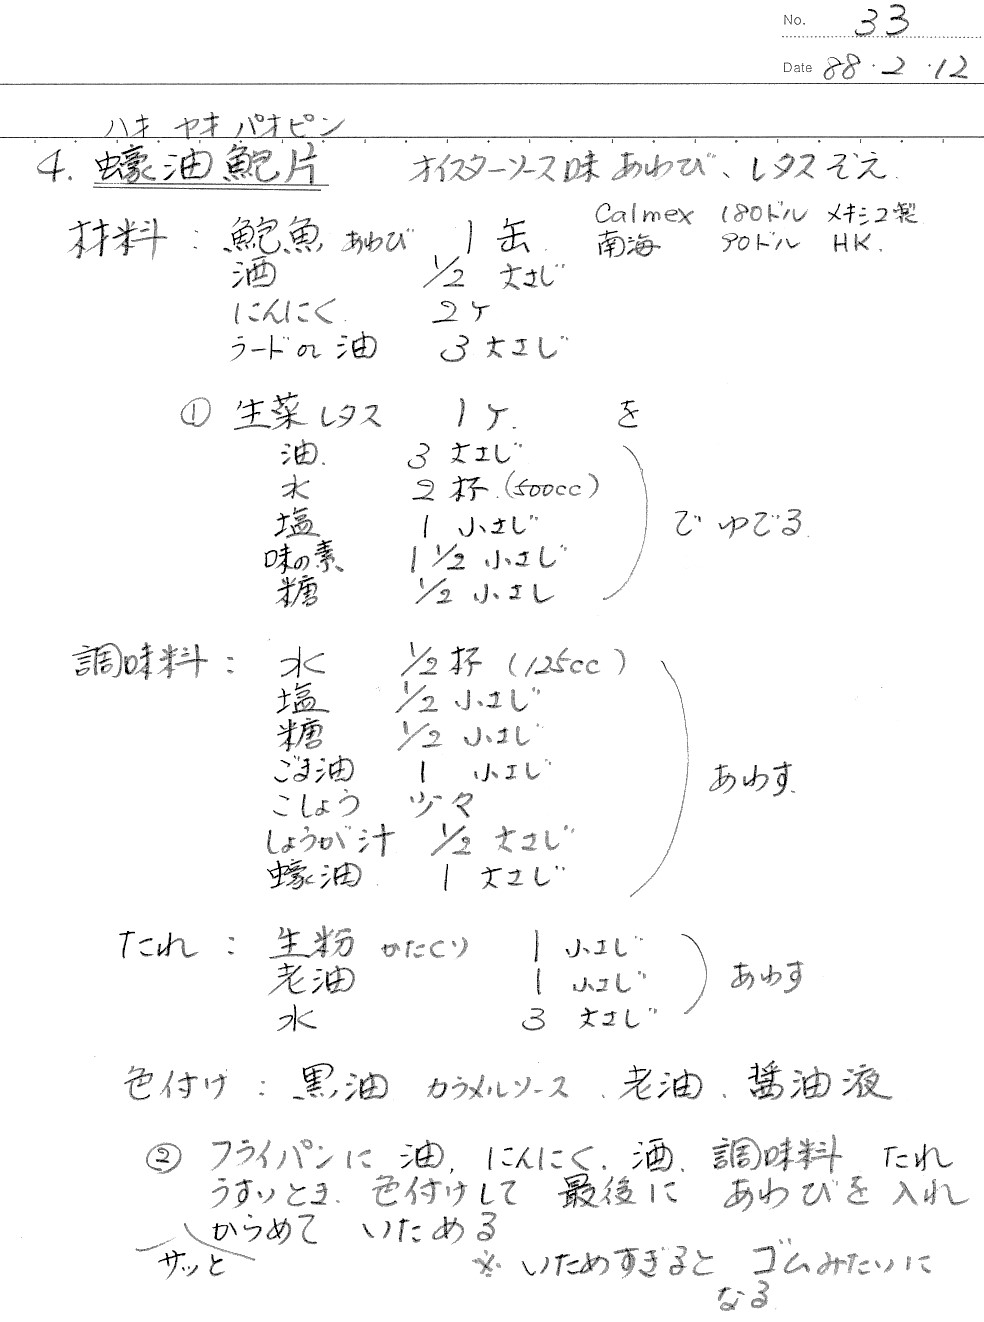 No. 33
Date 88・2・12
ハオ ヤオ パオピン
4. 蠔油鮑片 オイスターソース味 あわび、レタスぞえ.
材料: 鮑魚 あわび 1缶. Calmex 180ドル メキシコ製
南海 90ドル HK.
酒 1/2 大さじ
にんにく. 2ヶ
ラードor油 3 大さじ
① 生菜 レタス 1ヶ. を
油. 3 大さじ
水 2 杯.(500cc)
塩 1 小さじ
味の素 1 1/2 小さじ
糖 1/2 小さじ
でゆでる.
調味料: 水 1/2 杯 (125cc)
塩 1/2 小さじ
糖 1/2 小さじ
ごま油 1 小さじ
あわす.
こしょう 少々
しょうが汁 1/2 大さじ
蠔油 1 大さじ
たれ: 生粉 かたくり 1 小さじ
老油 1 小さじ あわす
水 3 大さじ
色付け: 黒油 カラメルソース. 老油. 醤油液
② フライパンに 油, にんにく. 酒. 調味料 たれ
うすいとき. 色付けして 最後に あわびを入れ
からめて いためる
サッと ※ いためすぎると ゴムみたいに
なる